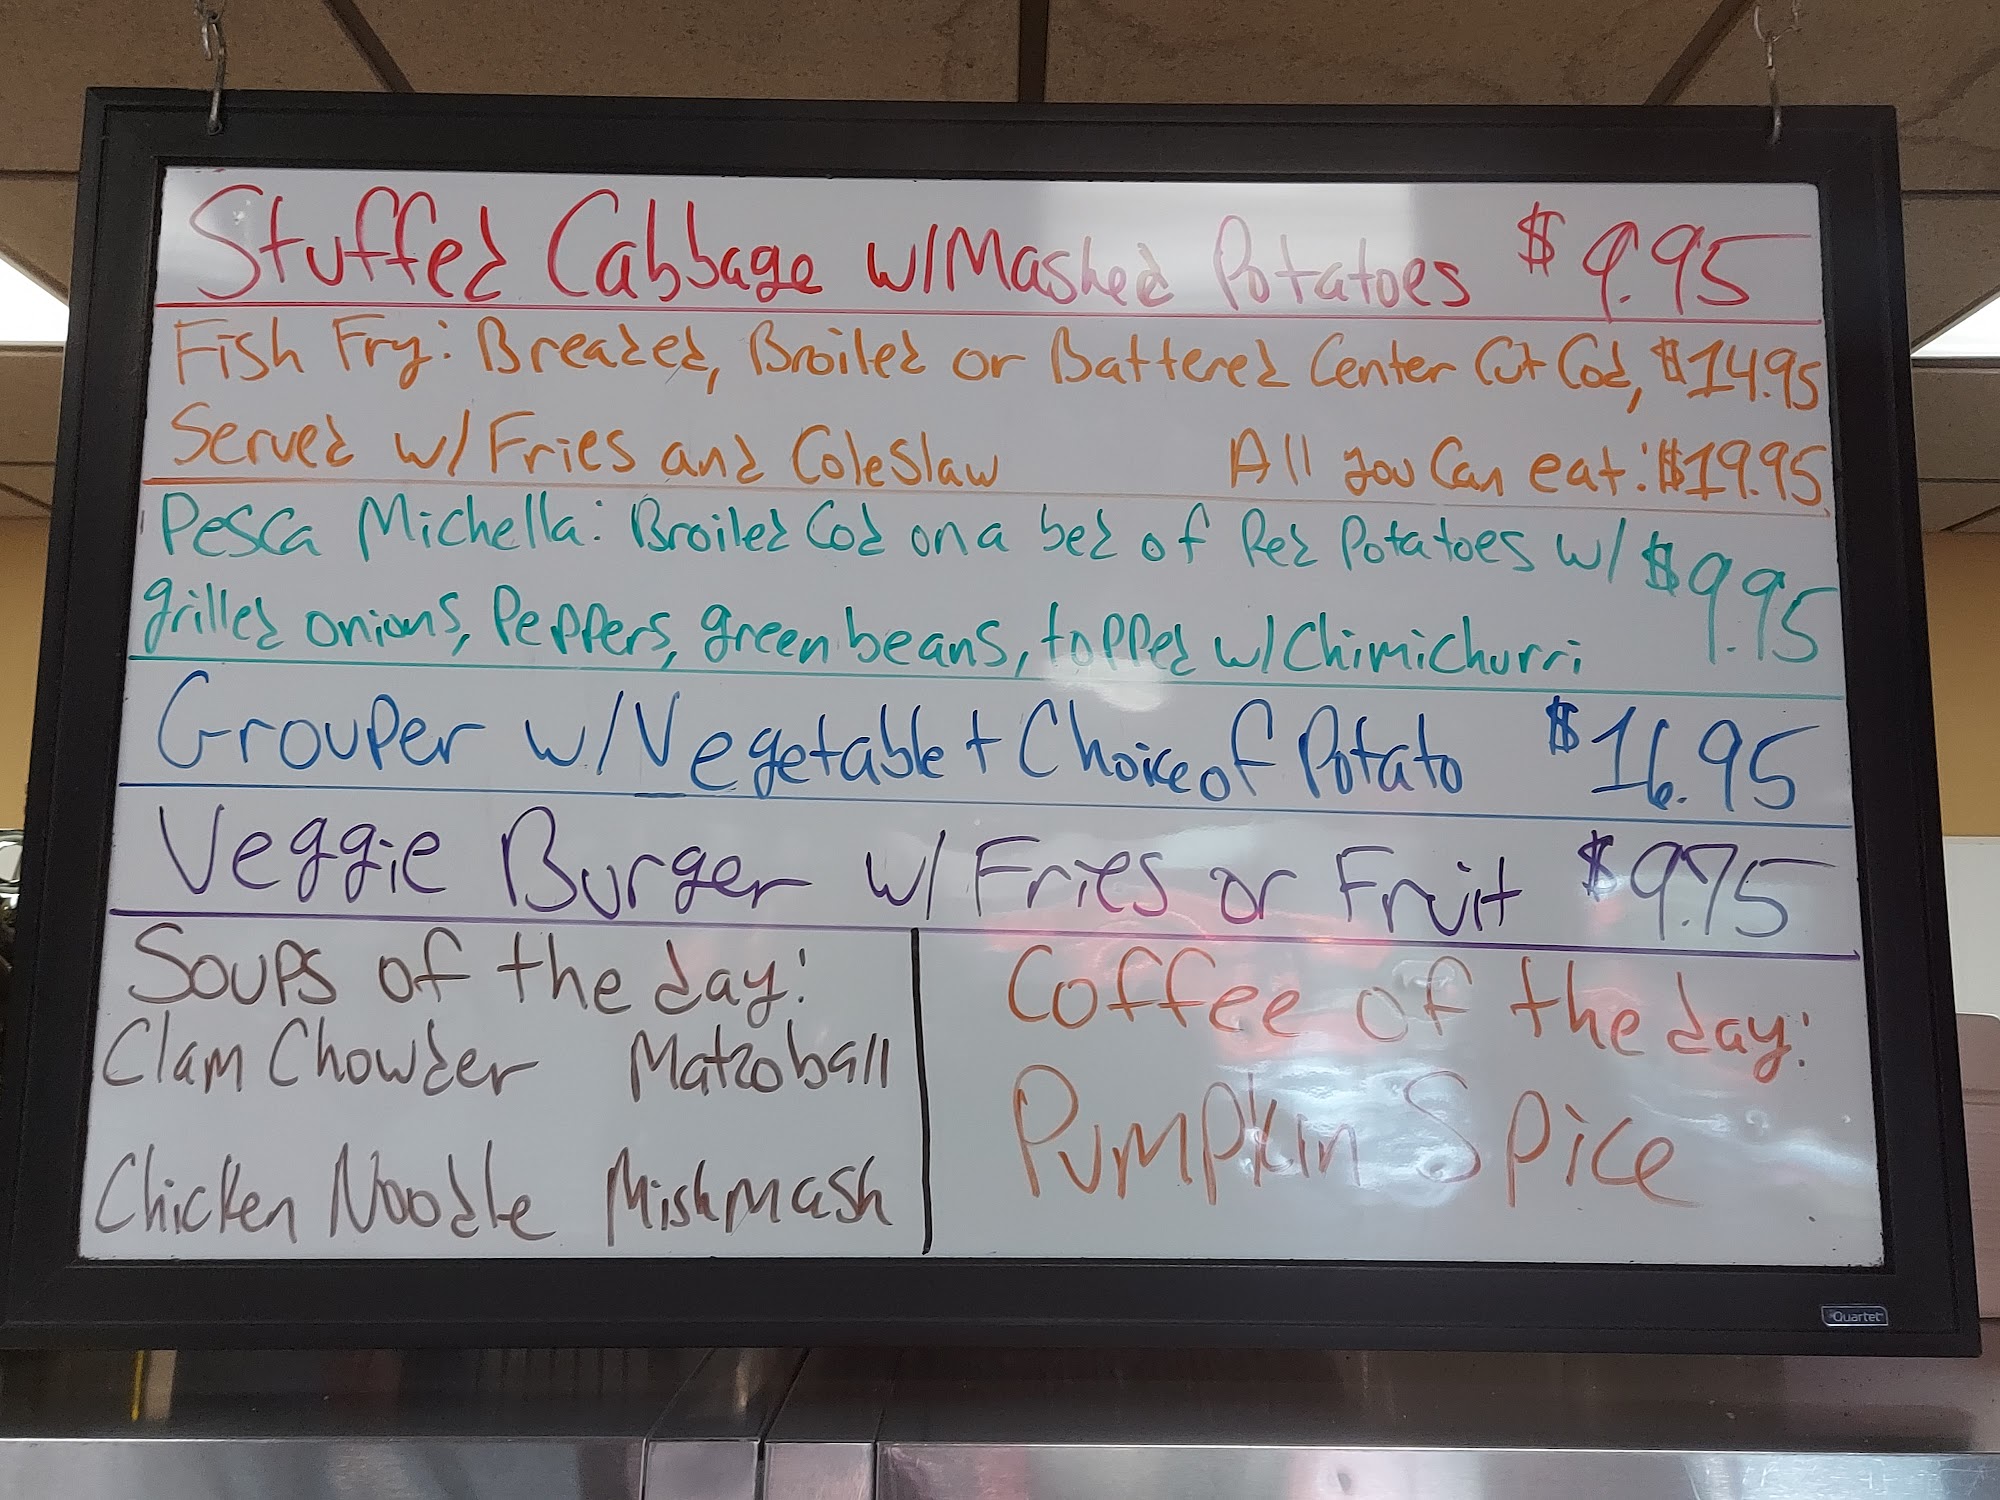 Stuffed Cabbage w/Mashed Potatoes $9.95
Fish Fry: Breaded, Broiled or Battered Center Cut Cod, $14.95
Served w/ Fries and Coleslaw All you Can eat: $19.95
Pesca Michella: Broiled Cod on a bed of Red Potatoes w/ $9.95
grilled onions, Peppers, green beans, topped w/Chimichurri
Grouper w/Vegetable + Choice of Potato $16.95
Veggie Burger w/ Fries or Fruit $9.75
Soups of the day:
Clam Chowder Matzoball
Chicken Noodle Mishmash
Coffee of the day:
Pumpkin Spice
Quartet